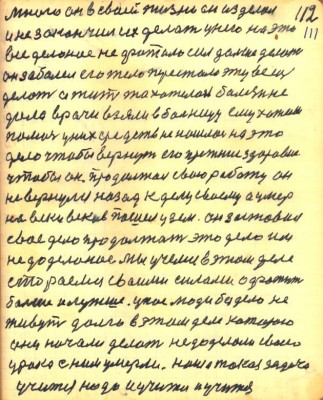 много он в своей жизни он из делал 112
и не закончил их делат у него на это 111
все делоное не фатило сил дальше делат
он заболел его тело перестало эту вещ
делат а жит то хотилос болезн не
дала врачи взяли в болницу ему хотели
помоч у них средств не нашлос на это
дело чтобы вернут его прежние здоровие
чтобы он продолжал свою работу он
не вернулся назад к делу своему а умер
на веки веков пошел у дем. он заставил
свое дело продолжат это дело им
не доделоное. мы учемся в этом деле
стораемся своими силами офотит
болше и лутше. умные люди бадело не
живут долго в этом деле которою
они начали делат недоделали своего
урока с ним умерли. наша такая задача
учится надо и учится и учится